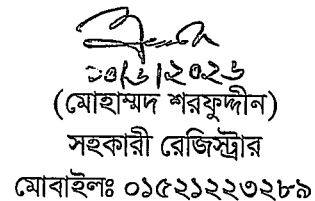 (মোহাম্মদ শরফুদ্দীন)
সহকারী রেজিস্ট্রার
মোবাইলঃ ০১৫২১২২৩২৮৯